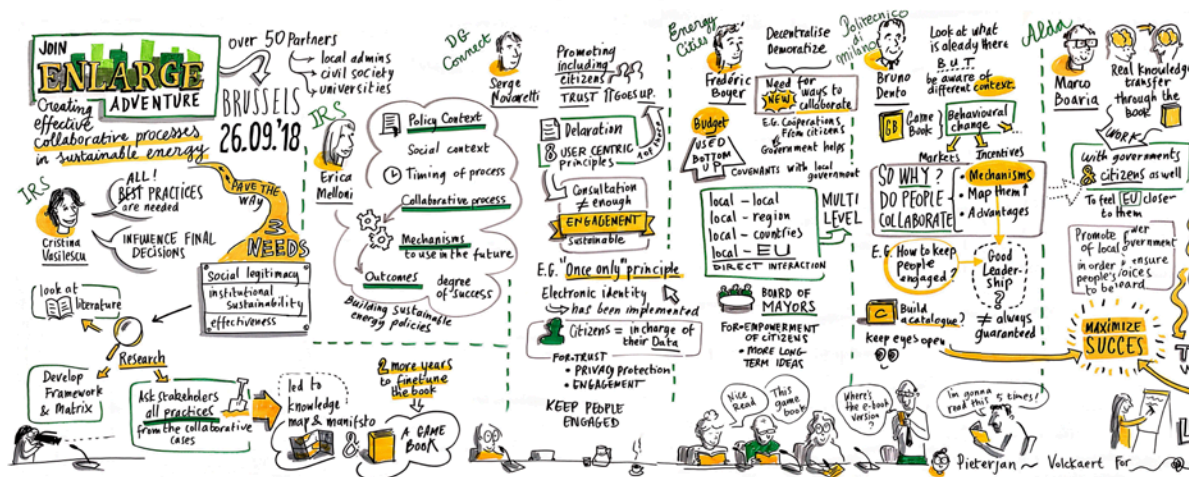 JOIN
ENLARGE
ADVENTURE
Creating
effective
collaborative processes
in sustainable energy
over 50 Partners
local admins
civil society
universities
BRUSSELS
26.09.'18
IRS
Cristina
Vasilescu
ALL!
BEST PRACTICES
are needed
INFLUENCE FINAL
DECISIONS
PAVE THE
WAY
3
NEEDS
Social legitimacy
institutional
sustainability
effectiveness
look at
literature
Research
Develop
Framework
& Matrix
Ask stakeholders
all practices
from the collaborative
cases
led to
knowledge
map & manifsto
&
2 more years to
finetune
the book
A GAME
BOOK
IRS
Erica
Melloni
Policy Context
Social context
Timing of process
Collaborative process
Mechanisms
to use in the future
Outcomes
degree
of success
Building sustainable
energy policies
DG
Connect
Serge
Novaretti
Promoting
including
citizens
TRUST GOES UP.
Delaration
8 USER CENTRIC
principles
Consultation
≠
enough
ENGAGEMENT
Sustainable
E.G. "Once only" principle
Electronic identity
has been implemented
Citizens = in charge of
their Data
FOR TRUST
• PRIVACY protection
• ENGAGEMENT
KEEP PEOPLE
ENGAGED
Energy
Cities
Frédéric
Boyer
Decentralise
Demoratize
Need for
NEW ways to
collaborate
E.G. Cooperations
From citizens
Government helps
Budget
USED
BOTTOM
UP
COVENANTS with local
government
local - local
local - region
local - countries
local - EU
DIRECT INTERACTION
MULTI
LEVEL
BOARD OF
MAYORS
FOR • EMPOWERMENT
OF CITIZENS
• MORE LONG
TERM IDEAS
Nice
Read
This
game
book
Politecnico
di
milano
Bruno
Dento
Look at what
is already there
BUT
be aware of
different context.
GB
Game
Book?
Behavioural
change
Markets
Incentives
...
SO WHY?
DO PEOPLE
COLLABORATE
• Mechanisms
• Map them
• Advantages
E.G. How to keep
people
engaged?
Good
Leader-
ship
?
≠ always
guaranteed
C
Build
a catalogue?
Keep eyes open
Where's
the e-book
version
?
I'm gonna
read this 5 times!
Alda
Marco
Boaria
Real Knowledge
transfer
through the
book
WORK
with governments
& citizens as well
To feel EU closer
to them
Promote
of local
in order
people's
to be
MAXIMIZE
SUCCES
Pieterjan ~ Volckaert For